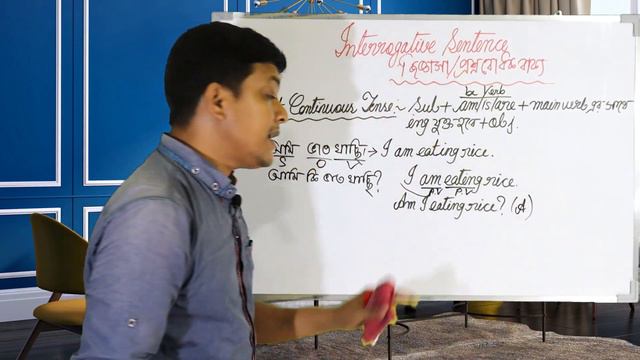 Interrogative Sentence
/ প্রশ্নবোধক বাক্য
be Verb
Continuous Tense:- Sub + am/is/are + main verb এর সাথে
ing যুক্ত হবে + Obj.
আমি ভাত খাচ্ছি → I am eating rice.
S O V
আমি কি ভাত খাচ্ছি? I am eating rice.
AV PV
Am I eating rice? (A)